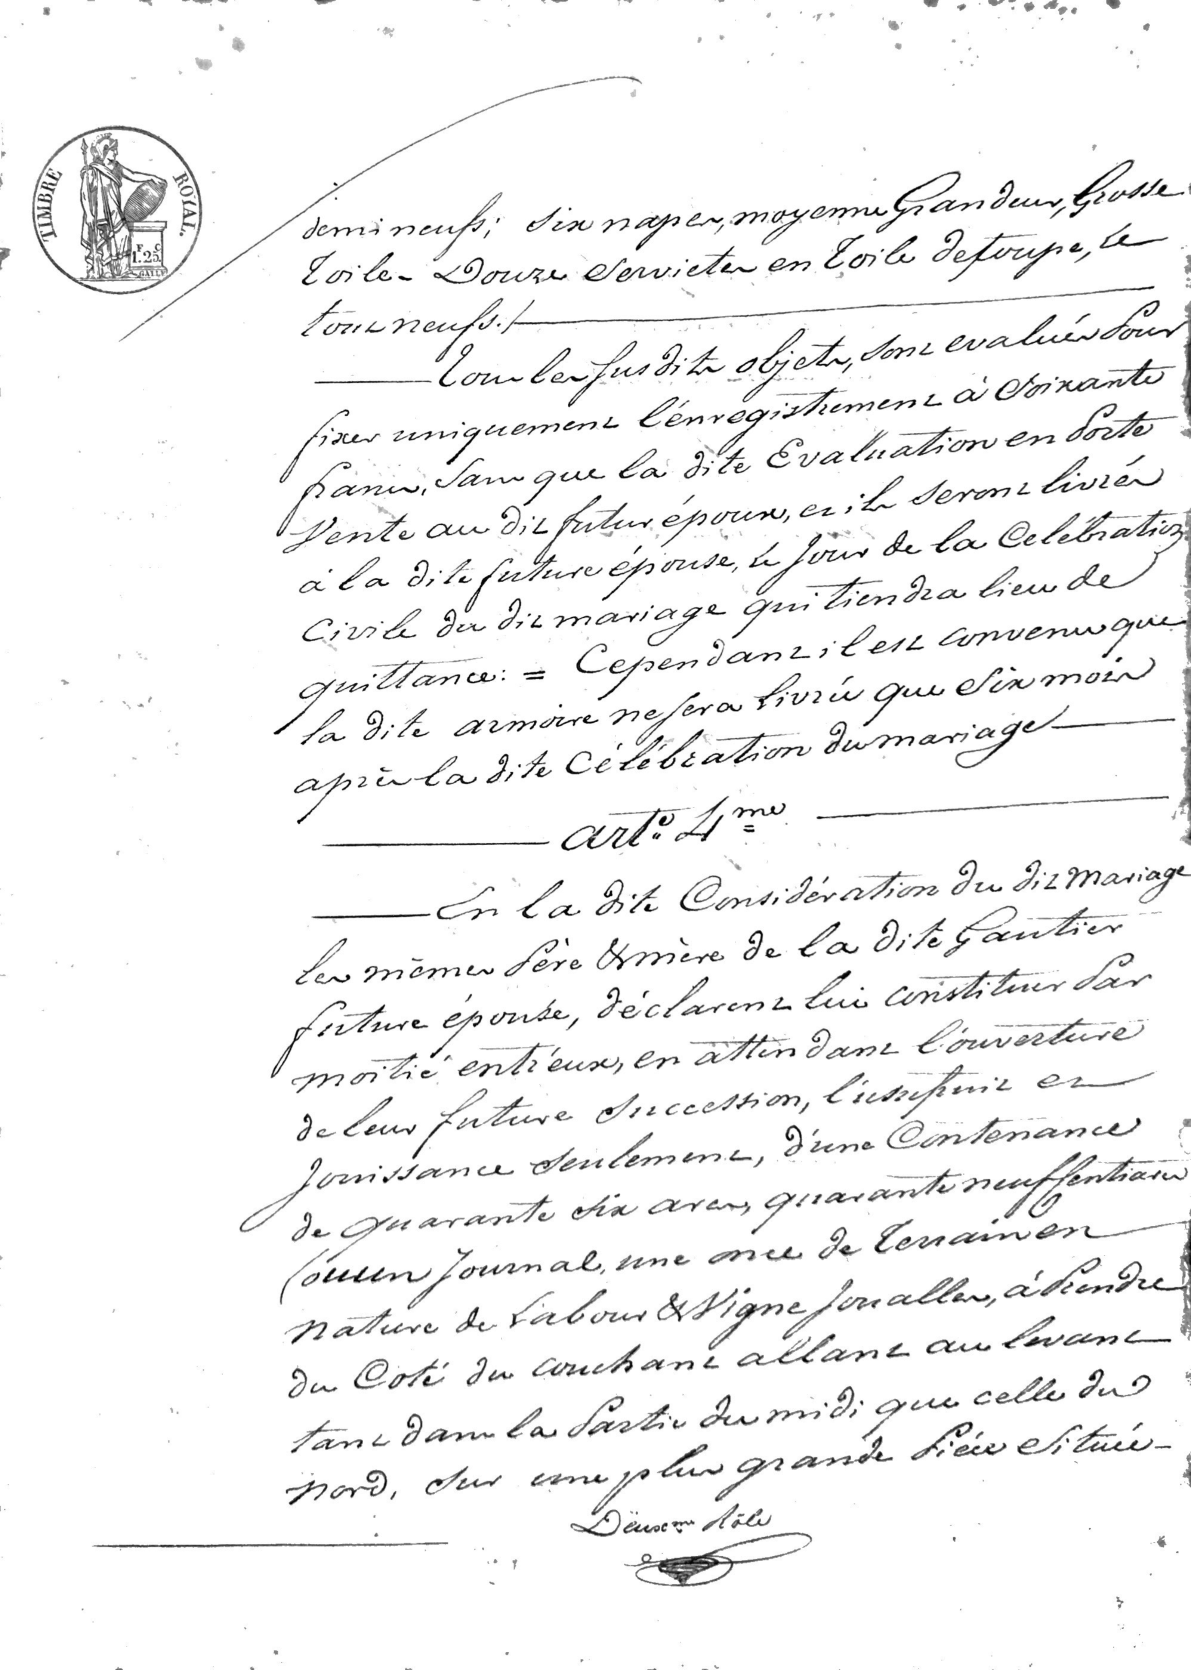 TIMBRE ROYAL.
F. C
1. 25.
demi neufs; six napes, moyenne Grandeur, Grosse
Toile - Douze Serviettes en Toile detoupe, le
tout neufs./.
Tous les susdits objets, sont evalués Pour
fixer uniquement l'énregistrement à Soixante
francs, Sans que la dite Evaluation en Porte
Vente au dit futur époux, et ils Seront livrés
à la dite future épouse, le Jour de la Celébration
Civile du dit mariage qui tiendra lieu de
quittance: = Cependant il est convenu que
la dite armoire ne sera Livrée que Six mois
après la dite Célébration du mariage
arte. 4me
En la dite Considération du dit Mariage
les mêmes Père & mère de la dite Gautier
future épouse, déclarent lui constituer Par
moitié entr'eux, en attendant l'ouverture
de leur future Succession, l'usufruit et
Jouissance Seulement, d'une Contenance
de quarante Six ares, quarante neuf Centiares
(ou un Journal, une once de Terrain en
Nature de Labour & Vigne Joualles, à Prendre
du Coté du couchant allant au levant
tant dans la Partie du midi que celle du
nord, Sur une plus grande Pièce Située -
Deuxme Rôle